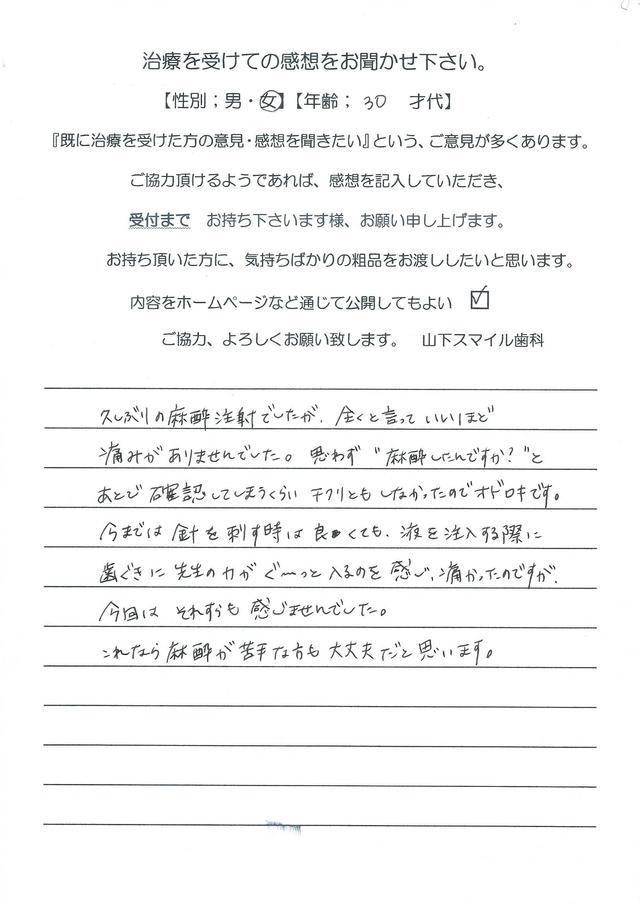 治療を受けての感想をお聞かせ下さい。
【性別；男・女】【年齢；30 才代】
『既に治療を受けた方の意見・感想を聞きたい』という、ご意見が多くあります。
ご協力頂けるようであれば、感想を記入していただき、
受付まで お持ち下さいます様、お願い申し上げます。
お持ち頂いた方に、気持ちばかりの粗品をお渡ししたいと思います。
内容をホームページなど通じて公開してもよい ☑
ご協力、よろしくお願い致します。 山下スマイル歯科
久しぶりの麻酔注射でしたが、全くと言っていいほど
痛みがありませんでした。思わず"麻酔したんですか？"と
あとで確認してしまうくらいチクリともしなかったのでオドロキです。
今までは針を刺す時は良くても、液を注入する際に
歯ぐきに先生の力がぐ〜っと入るのを感じ、痛かったのですが、
今回はそれすらも感じませんでした。
これなら麻酔が苦手な方も大丈夫だと思います。